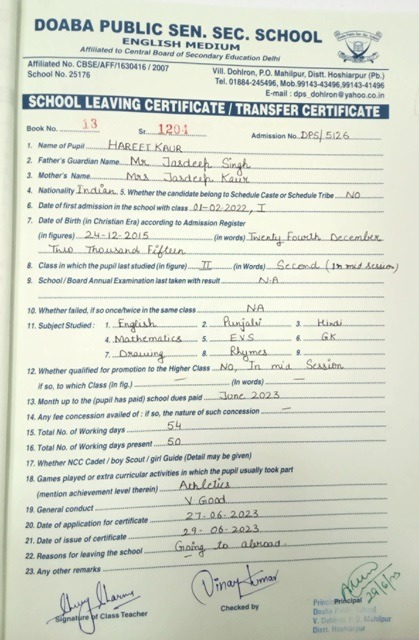 DOABA PUBLIC SEN. SEC. SCHOOL
ENGLISH MEDIUM
Affiliated to Central Board of Secondary Education Delhi
Affiliated No. CBSE/AFF/1630416 / 2007
School No. 25176
Vill. Dohlron, P.O. Mahilpur, Distt. Hoshiarpur (Pb.)
Tel. 01884-245496, Mob.99143-43496,99143-41496
E-mail : dps_dohlron@yahoo.co.in
SCHOOL LEAVING CERTIFICATE / TRANSFER CERTIFICATE
Book No. 13 Sr. 1201 Admission No. DPS/5126
1. Name of Pupil HAREET KAUR
2. Father's Guardian Name Mr. Jasdeep Singh
3. Mother's Name Mrs Jasdeep Kaur
4. Nationality Indian 5. Whether the candidate belong to Schedule Caste or Schedule Tribe NO
6. Date of first admission in the school with class 01-02-2022, I
7. Date of Birth (in Christian Era) according to Admission Register
(in figures) 24-12-2015 (in words) Twenty Fourth December
Two Thousand Fifteen
8. Class in which the pupil last studied (in figure) II (in Words) Second (In mid session)
9. School / Board Annual Examination last taken with result N.A
10. Whether failed, if so once/twice in the same class NA
11. Subject Studied : 1. English 2. Punjabi 3. Hindi
4. Mathematics 5. EVS 6. GK
7. Drawing 8. Rhymes 9.
12. Whether qualified for promotion to the Higher Class No, In mid Session
if so, to which Class (in fig.) — (in Words) —
13. Month up to the (pupil has paid) school dues paid June 2023
14. Any fee concession availed of : if so, the nature of such concession —
15. Total No. of Working days 54
16. Total No. of Working days present 50
17. Whether NCC Cadet / boy Scout / girl Guide (Detail may be given)
18. Games played or extra curricular activities in which the pupil usually took part
(mention achievement level therein) Athletics
19. General conduct V Good
20. Date of application for certificate 27-06-2023
21. Date of issue of certificate 29-06-2023
22. Reasons for leaving the school Going to abroad.
23. Any other remarks
Vinay Kumar
29/6/23
Signature of Class Teacher Checked by Principal
Principal
Doaba Public
V. Dohlron, P.O. Mahilpur
Distt. Hoshiarpur